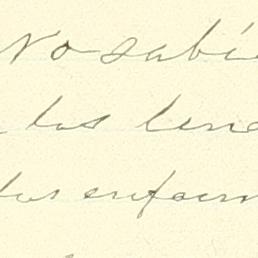 No sabí
las len
las enfer